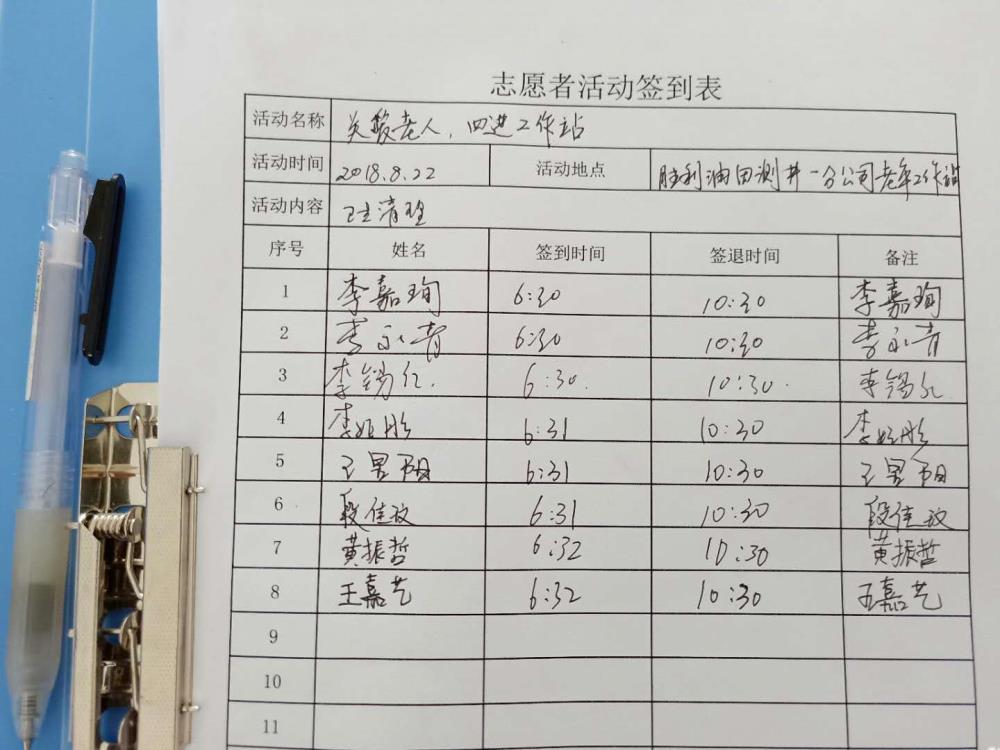 志愿者活动签到表
活动名称 关爱老人，四进工作站
活动时间 2018.8.22 活动地点 胜利油田测井一分公司老年工作站
活动内容 卫生清理
序号 姓名 签到时间 签退时间 备注
1 李嘉珣 6:30 10:30 李嘉珣
2 李永青 6:30 10:30 李永青
3 李锡仁. 6:30. 10:30. 李锡仁
4 李姃彤 6:31 10:30 李姃彤
5 王昱阳 6:31 10:30 王昱阳
6 段佳玫 6:31 10:30 段佳玫
7 黄振哲 6:32 10:30 黄振哲
8 王嘉艺 6:32 10:30 王嘉艺
9
10
11